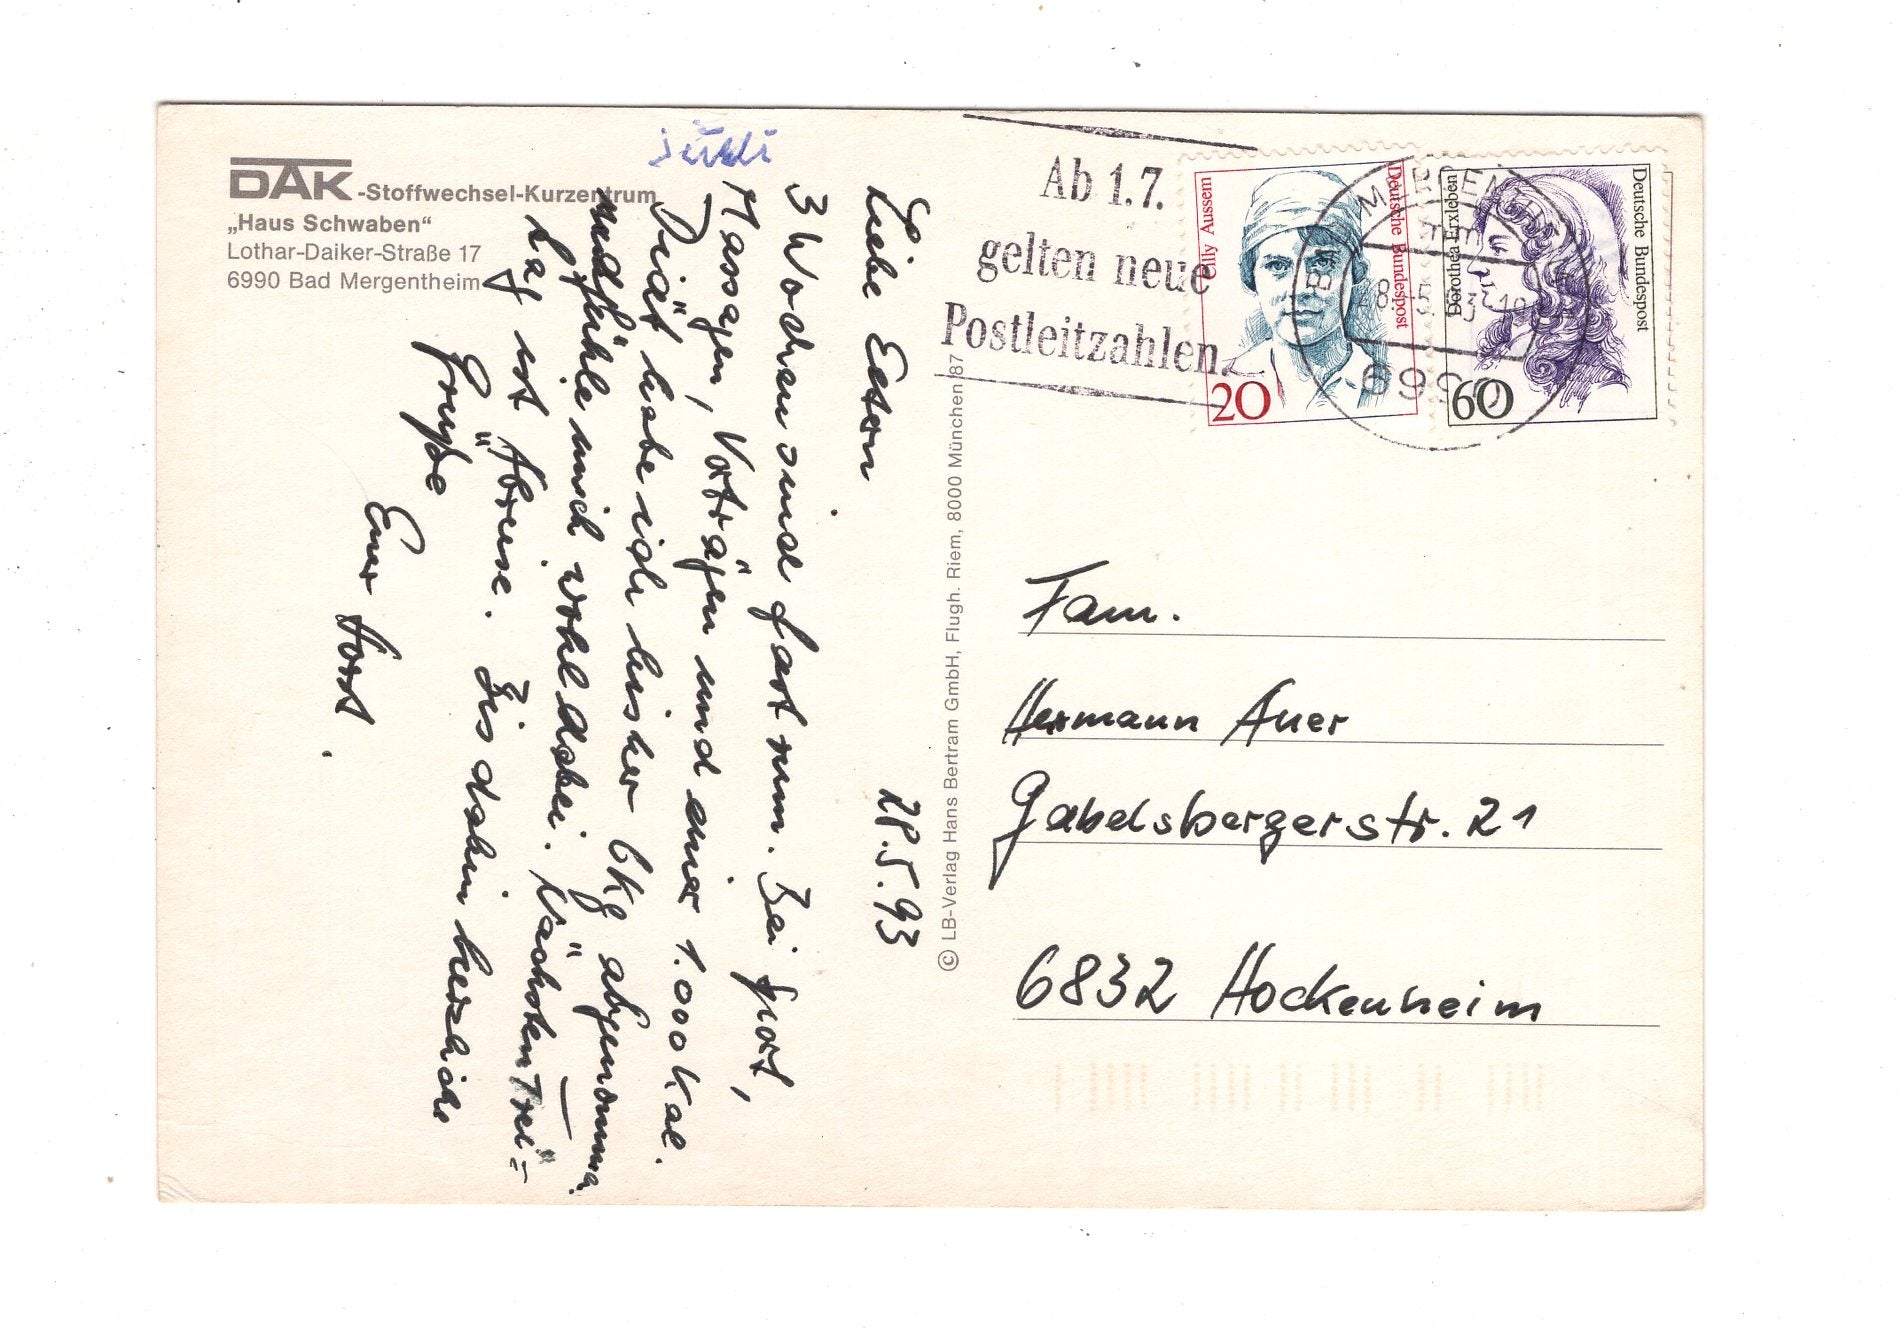 DAK-Stoffwechsel-Kurzentrum
„Haus Schwaben“
Lothar-Daiker-Straße 17
6990 Bad Mergentheim
28.5.93
Liebe Eltern
3 Wochen sind fast rum. Bei Sport,
Massagen, Vorträgen und einer 1.000 Kal.
Diät habe ich bisher 6kg abgenommen
und fühle mich wohl dabei. Nächsten Frei=
tag ist Abreise. Bis dahin herzliche
Grüße
Euer Horst.
© LB-Verlag Hans Bertram GmbH, Flugh. Riem, 8000 München 87
Ab 1.7.
gelten neue
Postleitzahlen
Cilly Aussem
Deutsche Bundespost
20
Dorothea Erxleben
Deutsche Bundespost
60
BAD MERGENTHEIM
28.-5.93-19
6990
Fam.
Hermann Auer
Gabelsbergerstr. 21
6832 Hockenheim